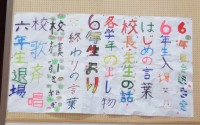 6年生を送る会
6年生入場
はじめの言葉
校長先生の話
各学年の出し物
6年生より
終わりの言葉
校歌斉唱
六年生退場